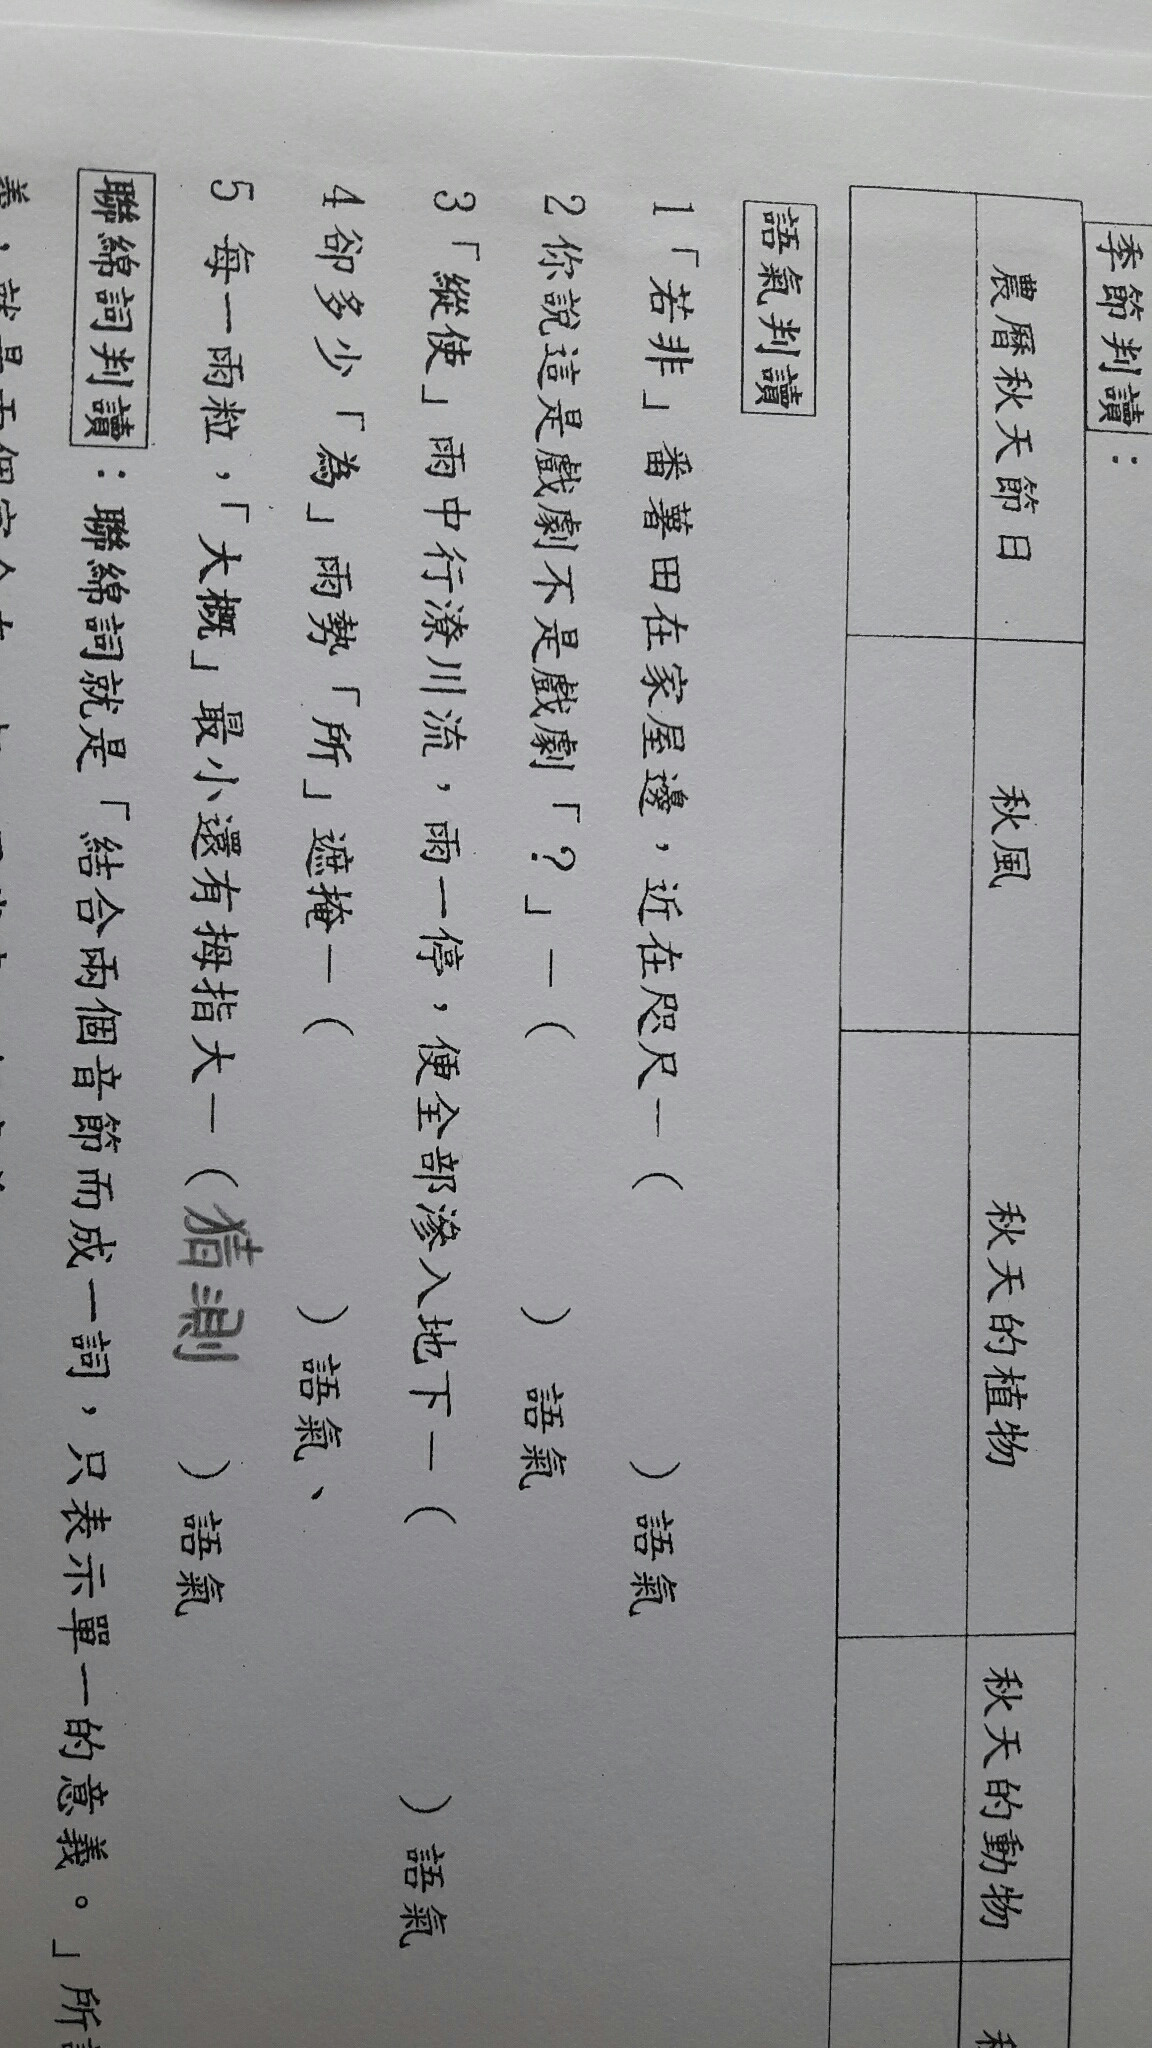 季節判讀：
農曆秋天節日 秋風 秋天的植物 秋天的動物
語氣判讀
1「若非」番薯田在家屋邊，近在咫尺－（ ）語氣
2你說這是戲劇不是戲劇「？」－（ ）語氣
3「縱使」雨中行潦川流，雨一停，便全部滲入地下－（ ）語氣
4卻多少「為」雨勢「所」遮掩－（ ）語氣、
5 每一雨粒，「大概」最小還有拇指大－（猜測 ）語氣
聯綿詞判讀：聯綿詞就是「結合兩個音節而成一詞，只表示單一的意義。」所